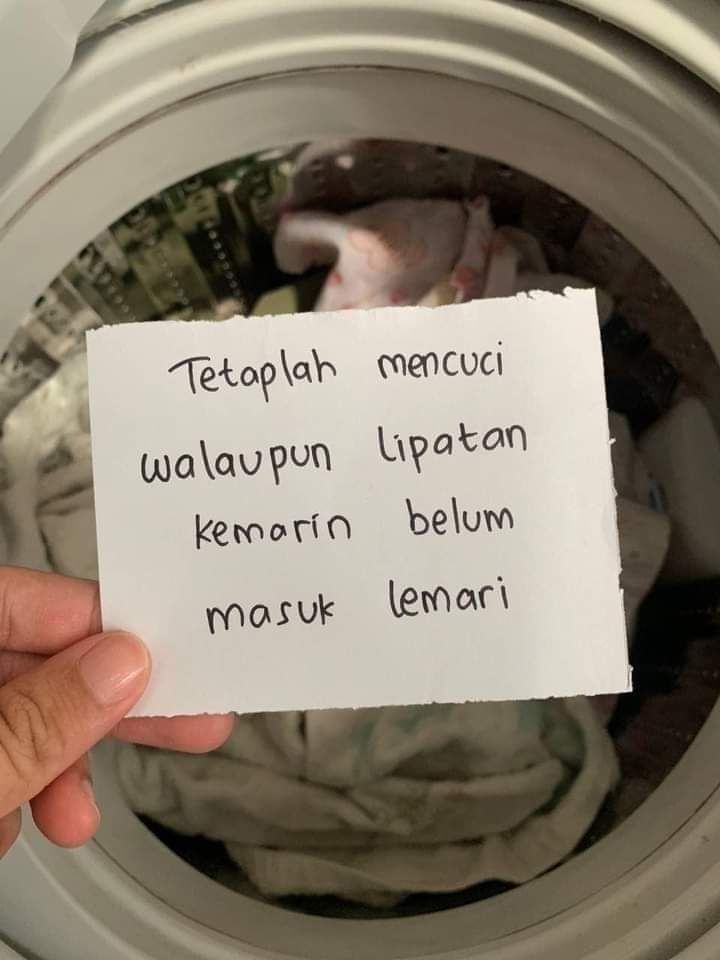 Tetaplah mencuci
walaupun lipatan
kemarin belum
masuk lemari